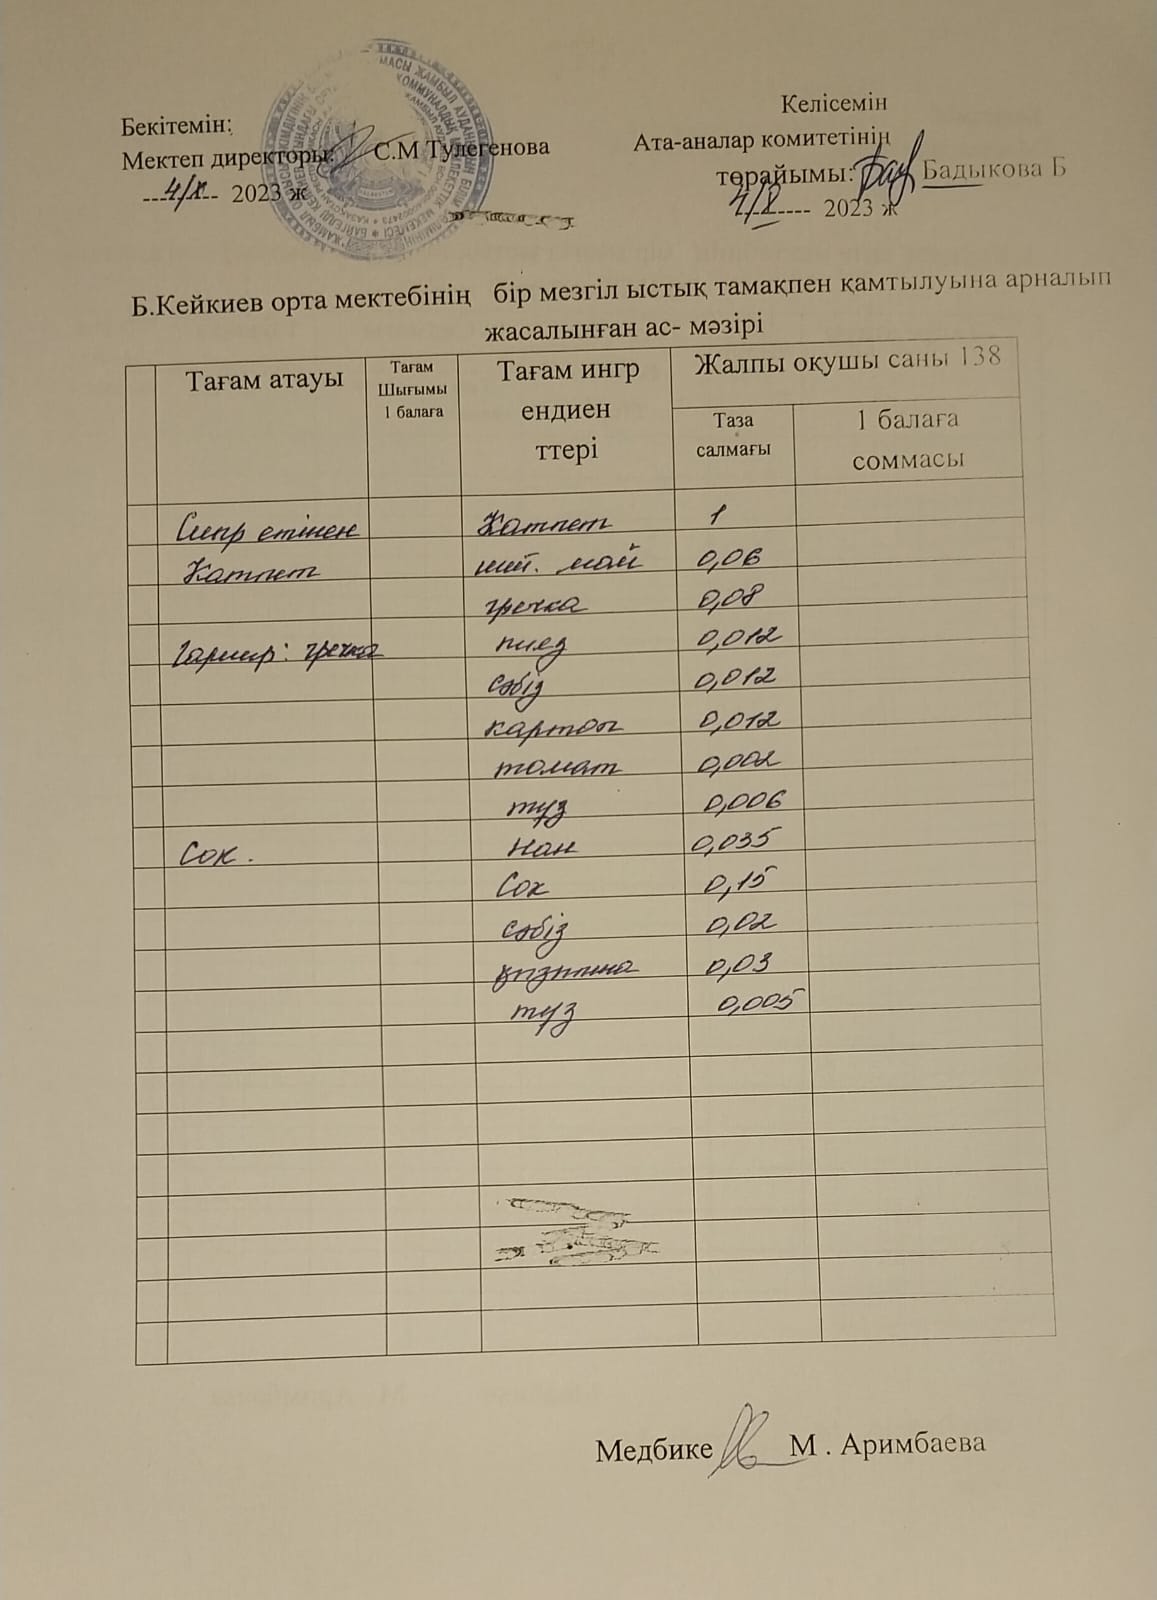 Келісемін
Бекітемін:
Ата-аналар комитетінің
Мектеп директоры: С.М Тулегенова
төрайымы: Бадыкова Б
4/X 2023 ж
4/X 2023 ж
Б.Кейкиев орта мектебінің бір мезгіл ыстық тамақпен қамтылуына арналып
жасалынған ас- мәзірі
Тағам атауы
Тағам
Шығымы
1 балаға
Тағам ингр
ендиен
ттері
Жалпы оқушы саны 138
Таза
салмағы
1 балаға
соммасы
Сиыр етінен Катлет 1
Катлет май 0,06
гречка 0,08
Гарнир: гречка пияз 0,012
сәбіз 0,012
картоп 0,012
томат 0,002
тұз 0,006
Сок. Нан 0,035
Сок 0,15
сәбіз 0,02
қызылша 0,03
тұз 0,005
Медбике М . Аримбаева